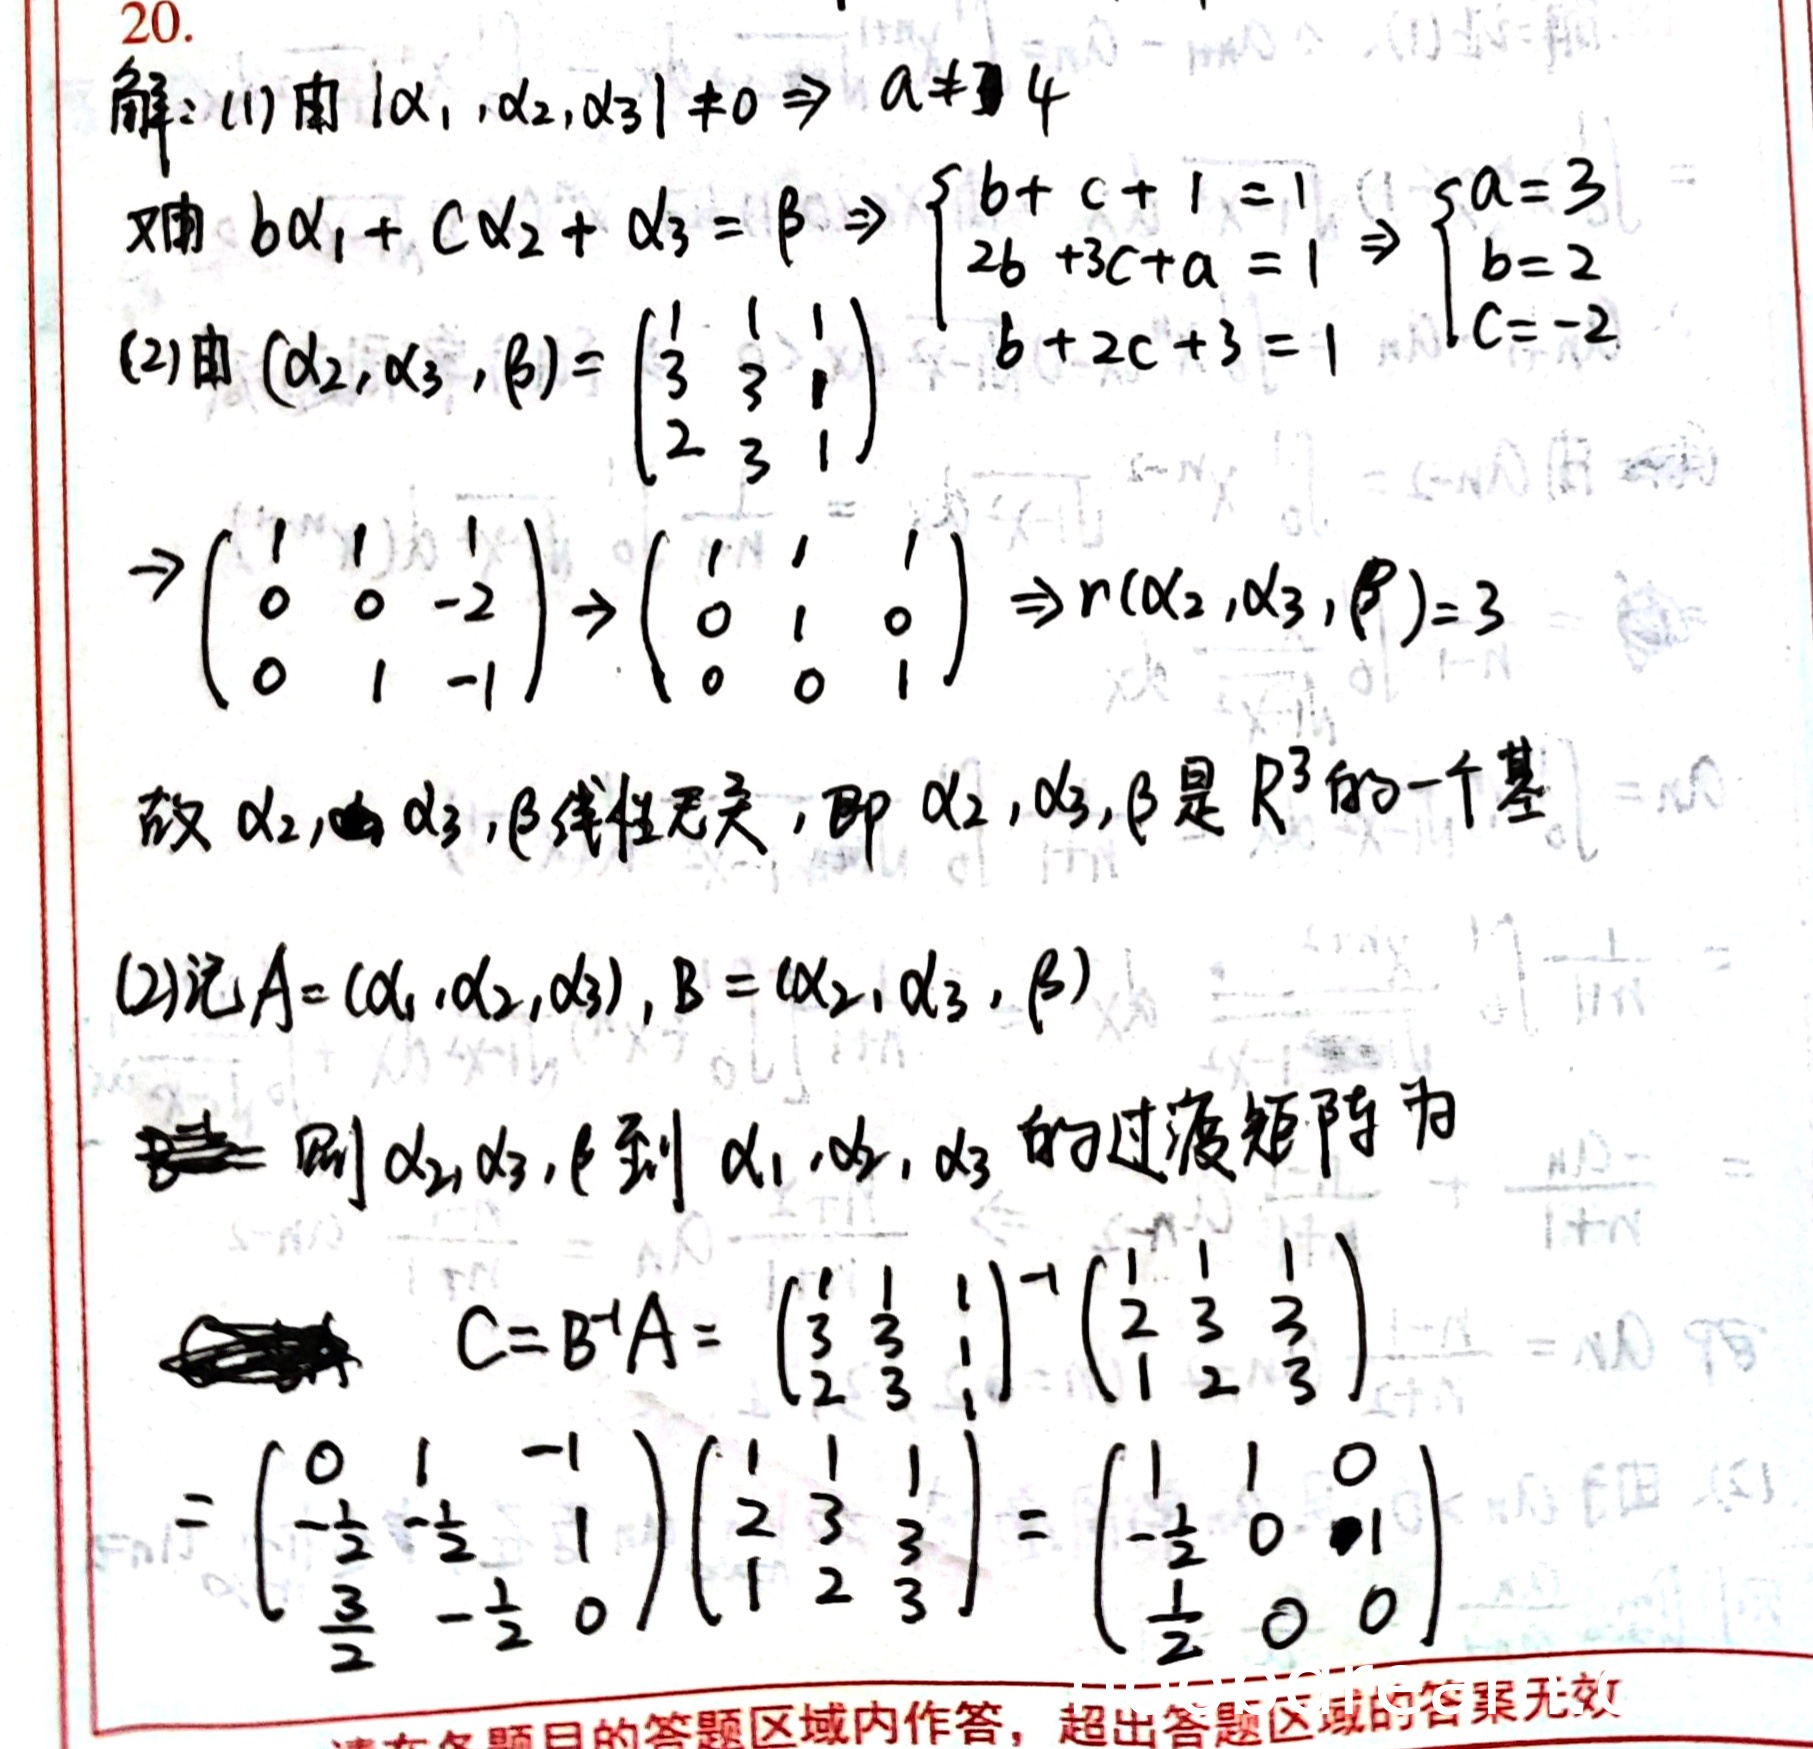 20.
解：(1) 由 |α₁, α₂, α₃| ≠ 0 ⇒ a ≠ 4
又由 bα₁ + cα₂ + α₃ = β ⇒ { b + c + 1 = 1, 2b + 3c + a = 1, b + 2c + 3 = 1 ⇒ { a = 3, b = 2, c = -2
(2) 由 (α₂, α₃, β) = (1 1 1; 3 3 1; 2 3 1)
→ (1 1 1; 0 0 -2; 0 1 -1) → (1 1 1; 0 1 0; 0 0 1) ⇒ r(α₂, α₃, β) = 3
故 α₂, α₃, β 线性无关, 即 α₂, α₃, β 是 R³ 的一个基
(2) 记 A = (α₁, α₂, α₃), B = (α₂, α₃, β)
则 α₂, α₃, β 到 α₁, α₂, α₃ 的过渡矩阵为
C = B⁻¹A = (1 1 1; 3 3 1; 2 3 1)⁻¹ (1 1 1; 2 3 3; 1 2 3)
= (0 1 -1; -1/2 -1/2 1; 3/2 -1/2 0) (1 1 1; 2 3 3; 1 2 3) = (1 1 0; -1/2 0 1; 1/2 0 0)
请在各题目的答题区域内作答，超出答题区域的答案无效